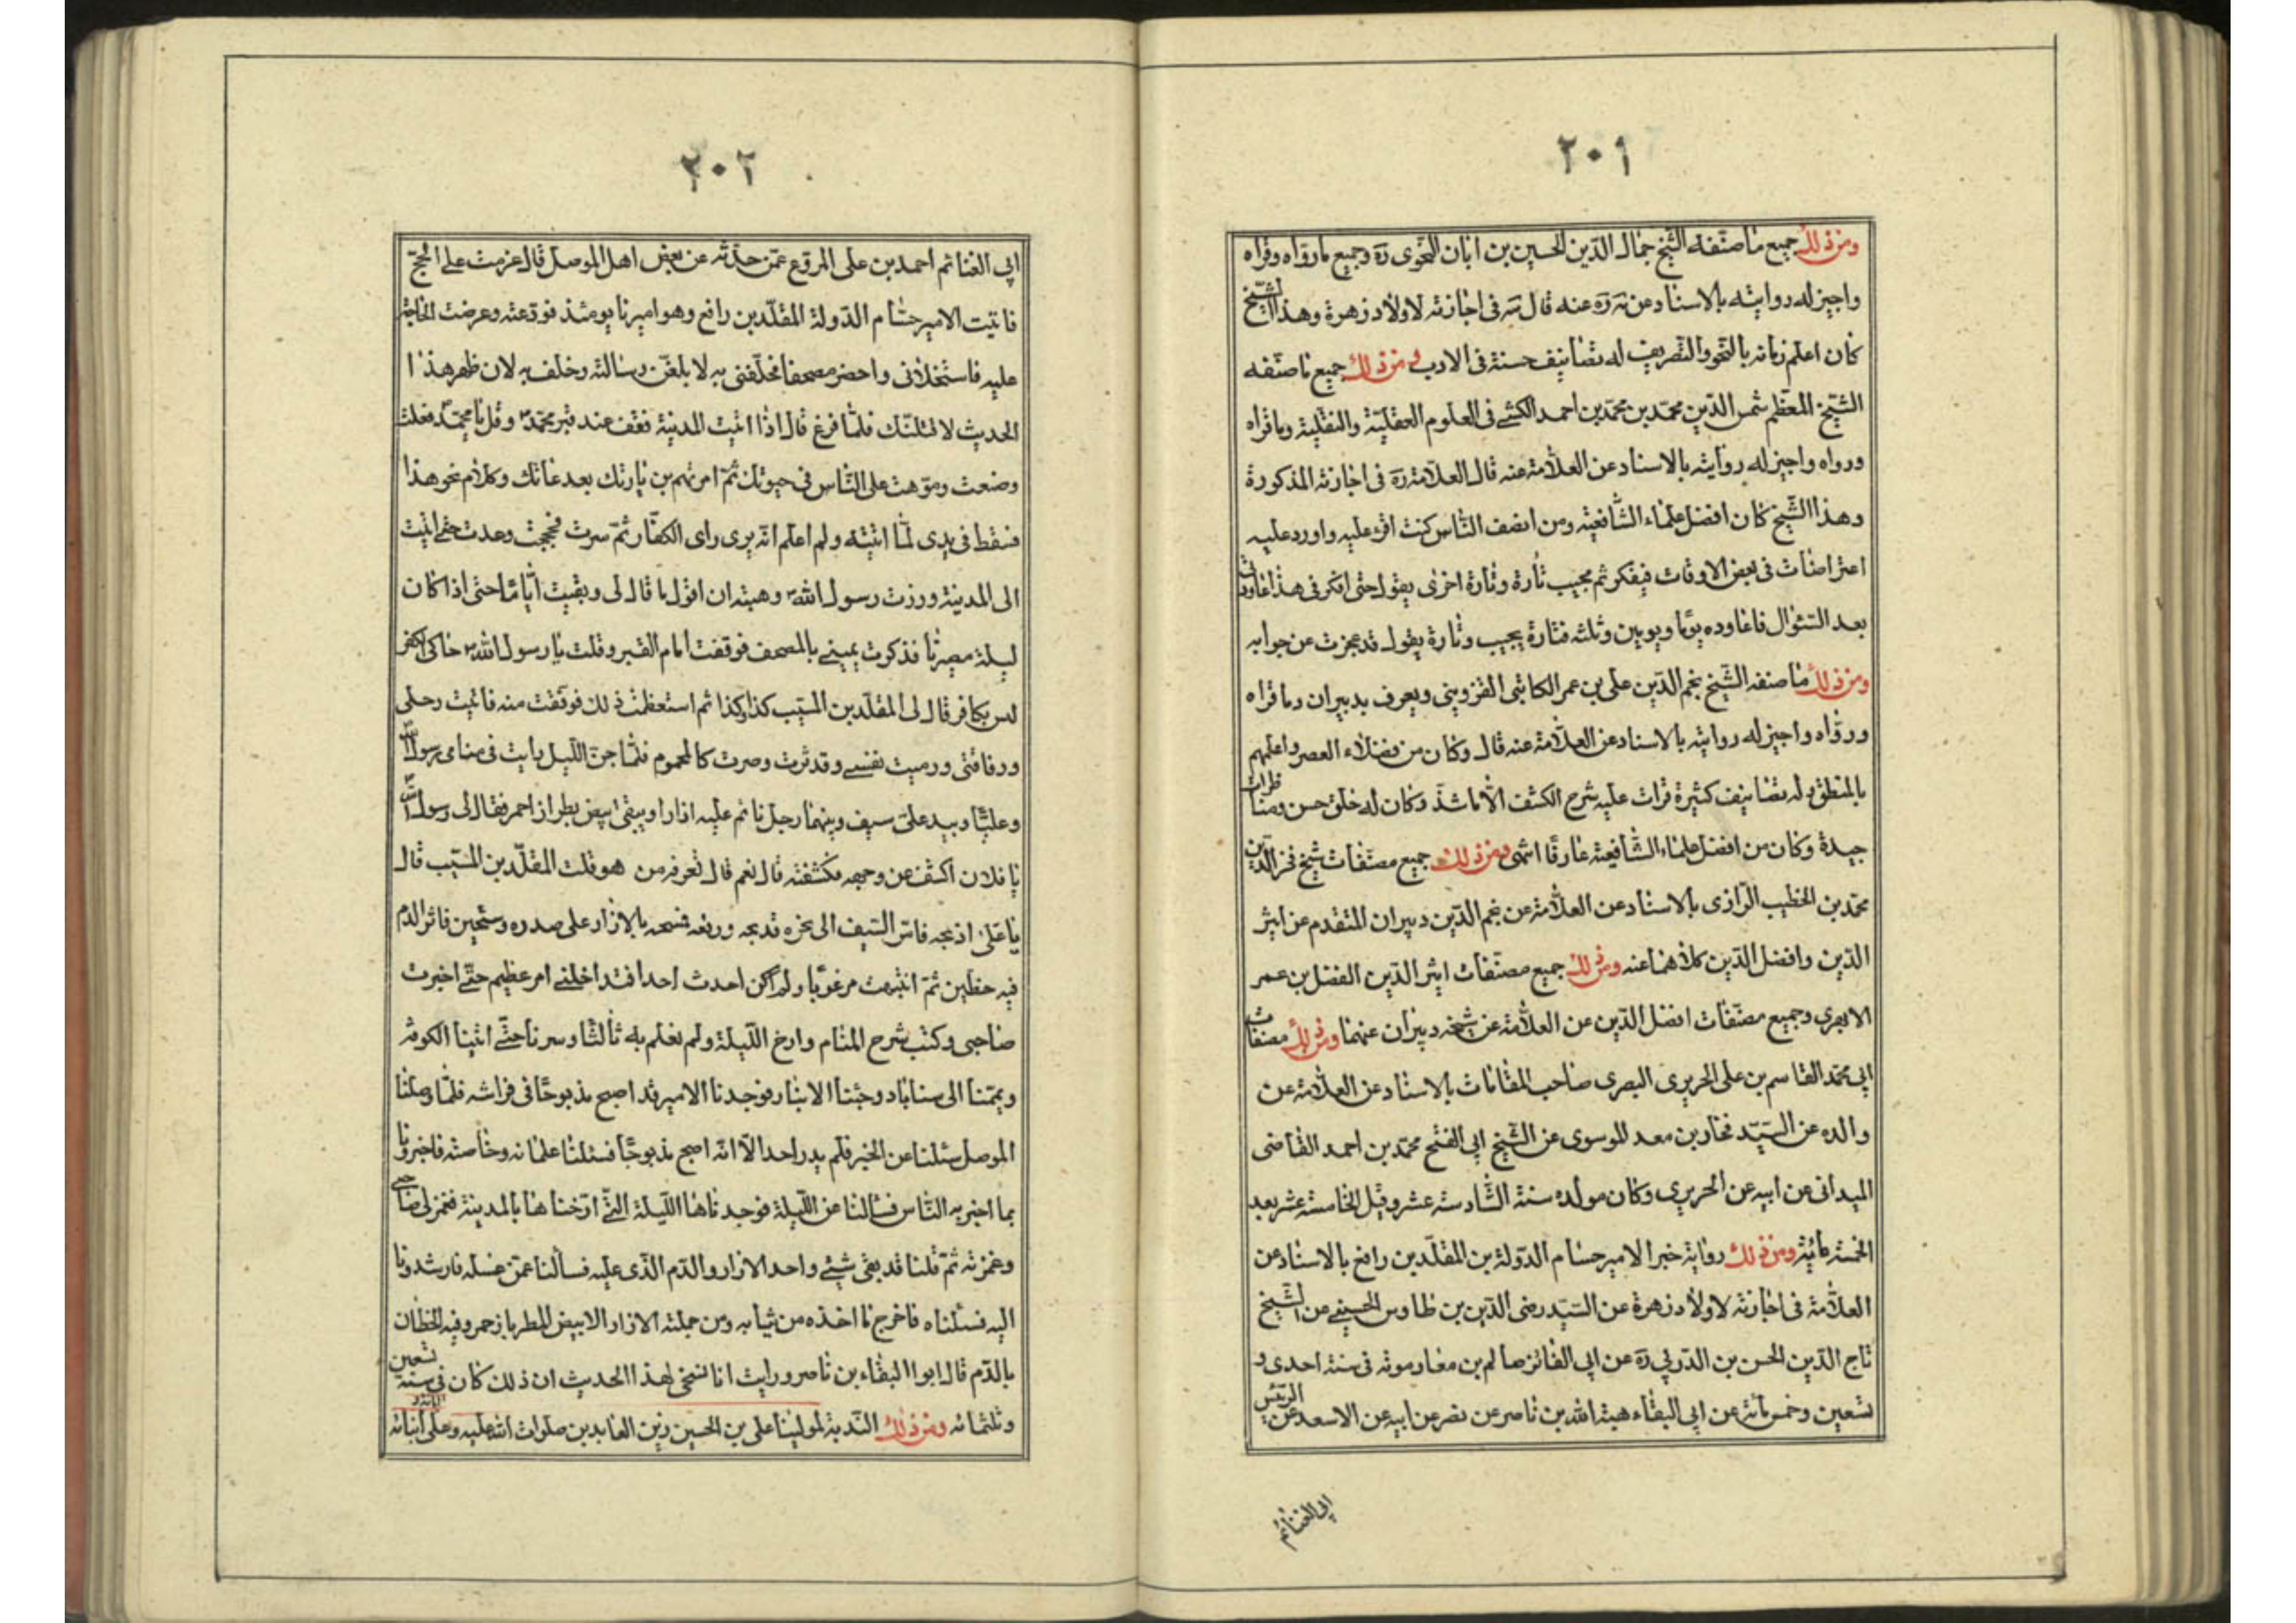 ٢٠١
ومن ذلك جميع ما صنفه الشيخ جمال الدين الحسين بن ابان النحوى ره وجميع ما رواه وقراه
واجيز له روايته بالاسناد عن ته ره عنه قال ته فى اجازته لاولاد زهرة وهذا الشيخ
كان اعلم زمانه بالنحو والتصريف له تصانيف حسنة فى الادب ومن ذلك جميع ما صنفه
الشيخ المعظم شمس الدين محمد بن محمد بن احمد الكشى فى العلوم العقلية والنقلية وما قراه
ورواه واجيز له روايته بالاسناد عن العلامة عنه قال العلامة ره فى اجازته المذكورة
وهذا الشيخ كان افضل علماء الشافعية ومن انصف الناس كنت اقرء عليه واورد عليه
اعتراضات فى بعض الاوقات فيفكر ثم يجيب تارة وتارة اخرى يقول حتى افكر فى هذا عاودنى
بعد السئوال فاعاوده يوما ويومين وثلثه فتارة يجيب وتارة يقول قد عجزت عن جوابه
ومن ذلك ما صنفه الشيخ نجم الدين على بن عمر الكاتبى القزوينى ويعرف بدبيران وما قراه
ورواه واجيز له روايته بالاسناد عن العلامة عنه قال وكان من فضلاء العصر واعلمهم
بالمنطق وله تصانيف كثيرة قرات عليه شرح الكشف الا ما شذ وكان له خلق حسن ومناظرات
جيدة وكان من افضل علماء الشافعية عارفا انتهى ومن ذلك جميع مصنفات شيخ فخر الدين
محمد بن الخطيب الرازى بالاسناد عن العلامة عن نجم الدين دبيران المتقدم عن اثير
الدين وافضل الدين كلاهما عنه ومن ذلك جميع مصنفات اثير الدين الفضل بن عمر
الابهرى وجميع مصنفات افضل الدين عن العلامة عن شيخه دبيران عنهما ومن ذلك مصنفات
ابى محمد القاسم بن على الحريرى البصرى صاحب المقامات بالاسناد عن العلامة عن
والده عن السيد فخار بن معد الموسوى عن الشيخ ابى الفتح محمد بن احمد القاضى
الميدانى عن ابيه عن الحريرى وكان مولده سنة السادسة عشر وقيل الخامسة عشر بعد
الخمسة مائة ومن ذلك رواية خبر الامير حسام الدولة بن المقلد بن رافع بالاسناد عن
العلامة فى اجازته لاولاد زهرة عن السيد رضى الدين بن طاوس الحسينى عن الشيخ
تاج الدين الحسن بن الدربى ره عن ابى الفائز صالم بن معارموته فى سنة احدى و
تسعين وخمس مائة عن ابى البقاء هبة الله بن ناصر عن نصر عن ابيه عن الاسعد عن الرئيس
ابى الغنائم
٢٠٢
ابى الغنائم احمد بن على المروع عمن حدثه عن بعض اهل الموصل قال عزمت على الحج
فاتيت الامير حسام الدولة المقلد بن رافع وهو اميرنا يومئذ فودعته وعرضت الحاجة
عليه فاستخلانى واحضر مصحفا فحلفنى به لا بلغن رسالته وحلف به لان ظهر هذا
الحديث لاقتلنك فلما فرغ قال اذا اتيت المدينة فقف عند قبر محمد ص وقل يا محمد فعلت
وصنعت وموهت على الناس فى حيوتك ثم امرتهم بزيارتك بعد مماتك وكلام نحو هذا
فسقط فى يدى لما اتيته ولم اعلم انه يرى راى الكفار ثم سرت فحججت وعدت حتى اتيت
الى المدينة وزرت رسول الله ص وهبته ان اقول ما قال لى وبقيت اياما حتى اذا كان
ليلة مصرنا فذكرت يمينى بالمصحف فوقفت امام القبر وقلت يا رسول الله ص حاكى الكفر
ليس بكافر قال لى المقلد بن المسيب كذا وكذا ثم استعظمت ذلك فوقفت منه فاتيت رحلى
ورفاقتى ورميت نفسى وقد ثرت وصرت كالمحموم فلما جن الليل رايت فى منامى رسول الله ص
وعليا وبيد على سيف وبينهما رجل نائم عليه ازار ديبقى ابيض بطراز احمر فقال لى رسول الله ص
يا فلان اكشف عن وجهه فكشفته قال نعم قال تعرفه من هو قلت المقلد بن المسيب قال
يا على اذبحه فامر السيف الى نحره فذبحه ورفعه فمسحه بالازار على صدره مسحتين فاثر الدم
فيه خطين ثم انتبهت مرعوبا ولم اكن احدث احدا فتداخلنى امر عظيم حتى اخبرت
صاحبى وكتب شرح المنام وارخ الليلة ولم نعلم به ثالثا وسرنا حتى اتينا الكوفة
ويممنا الى سناباد وجئنا الانبار فوجدنا الامير قد اصبح مذبوحا فى فراشه فلما وصلنا
الموصل سئلنا عن الخبر فلم يدر احد الا انه اصبح مذبوحا فسئلنا غلمانه وخاصته فاخبرونا
بما اخبر به الناس فسألنا عن الليلة فوجدناها الليلة التى ارخناها بالمدينة فغمز لى صاحبى
وغمزته ثم قلنا قد بقى شيئ واحد الازار والدم الذى عليه فسألنا عمن غسله فارشدونا
اليه فسئلناه فاخرج ما اخذه من ثيابه ومن جملته الازار الابيض المطرز بازحمر وفيه الخطان
بالدم قال ابو البقاء بن ناصر ورايت انا نسخى لهذا الحديث ان ذلك كان فى سنة تسعين
وثلثمائه ومن ذلك الندبة لمولينا على بن الحسين زين العابدين صلوات الله عليه وعلى ابنائه